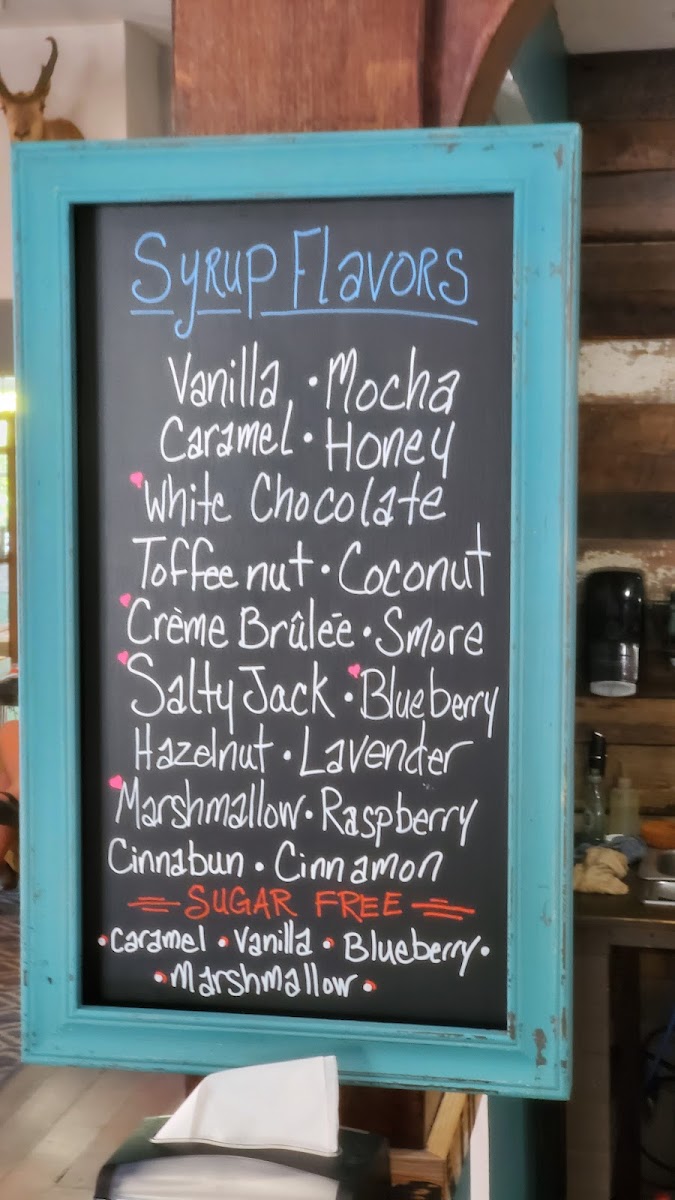 Syrup Flavors
Vanilla • Mocha
Caramel • Honey
White Chocolate
Toffee nut • Coconut
Crème Brûleé • Smore
Salty Jack • Blueberry
Hazelnut • Lavender
Marshmallow • Raspberry
Cinnabun • Cinnamon
SUGAR FREE
• Caramel • Vanilla • Blueberry •
• Marshmallow •